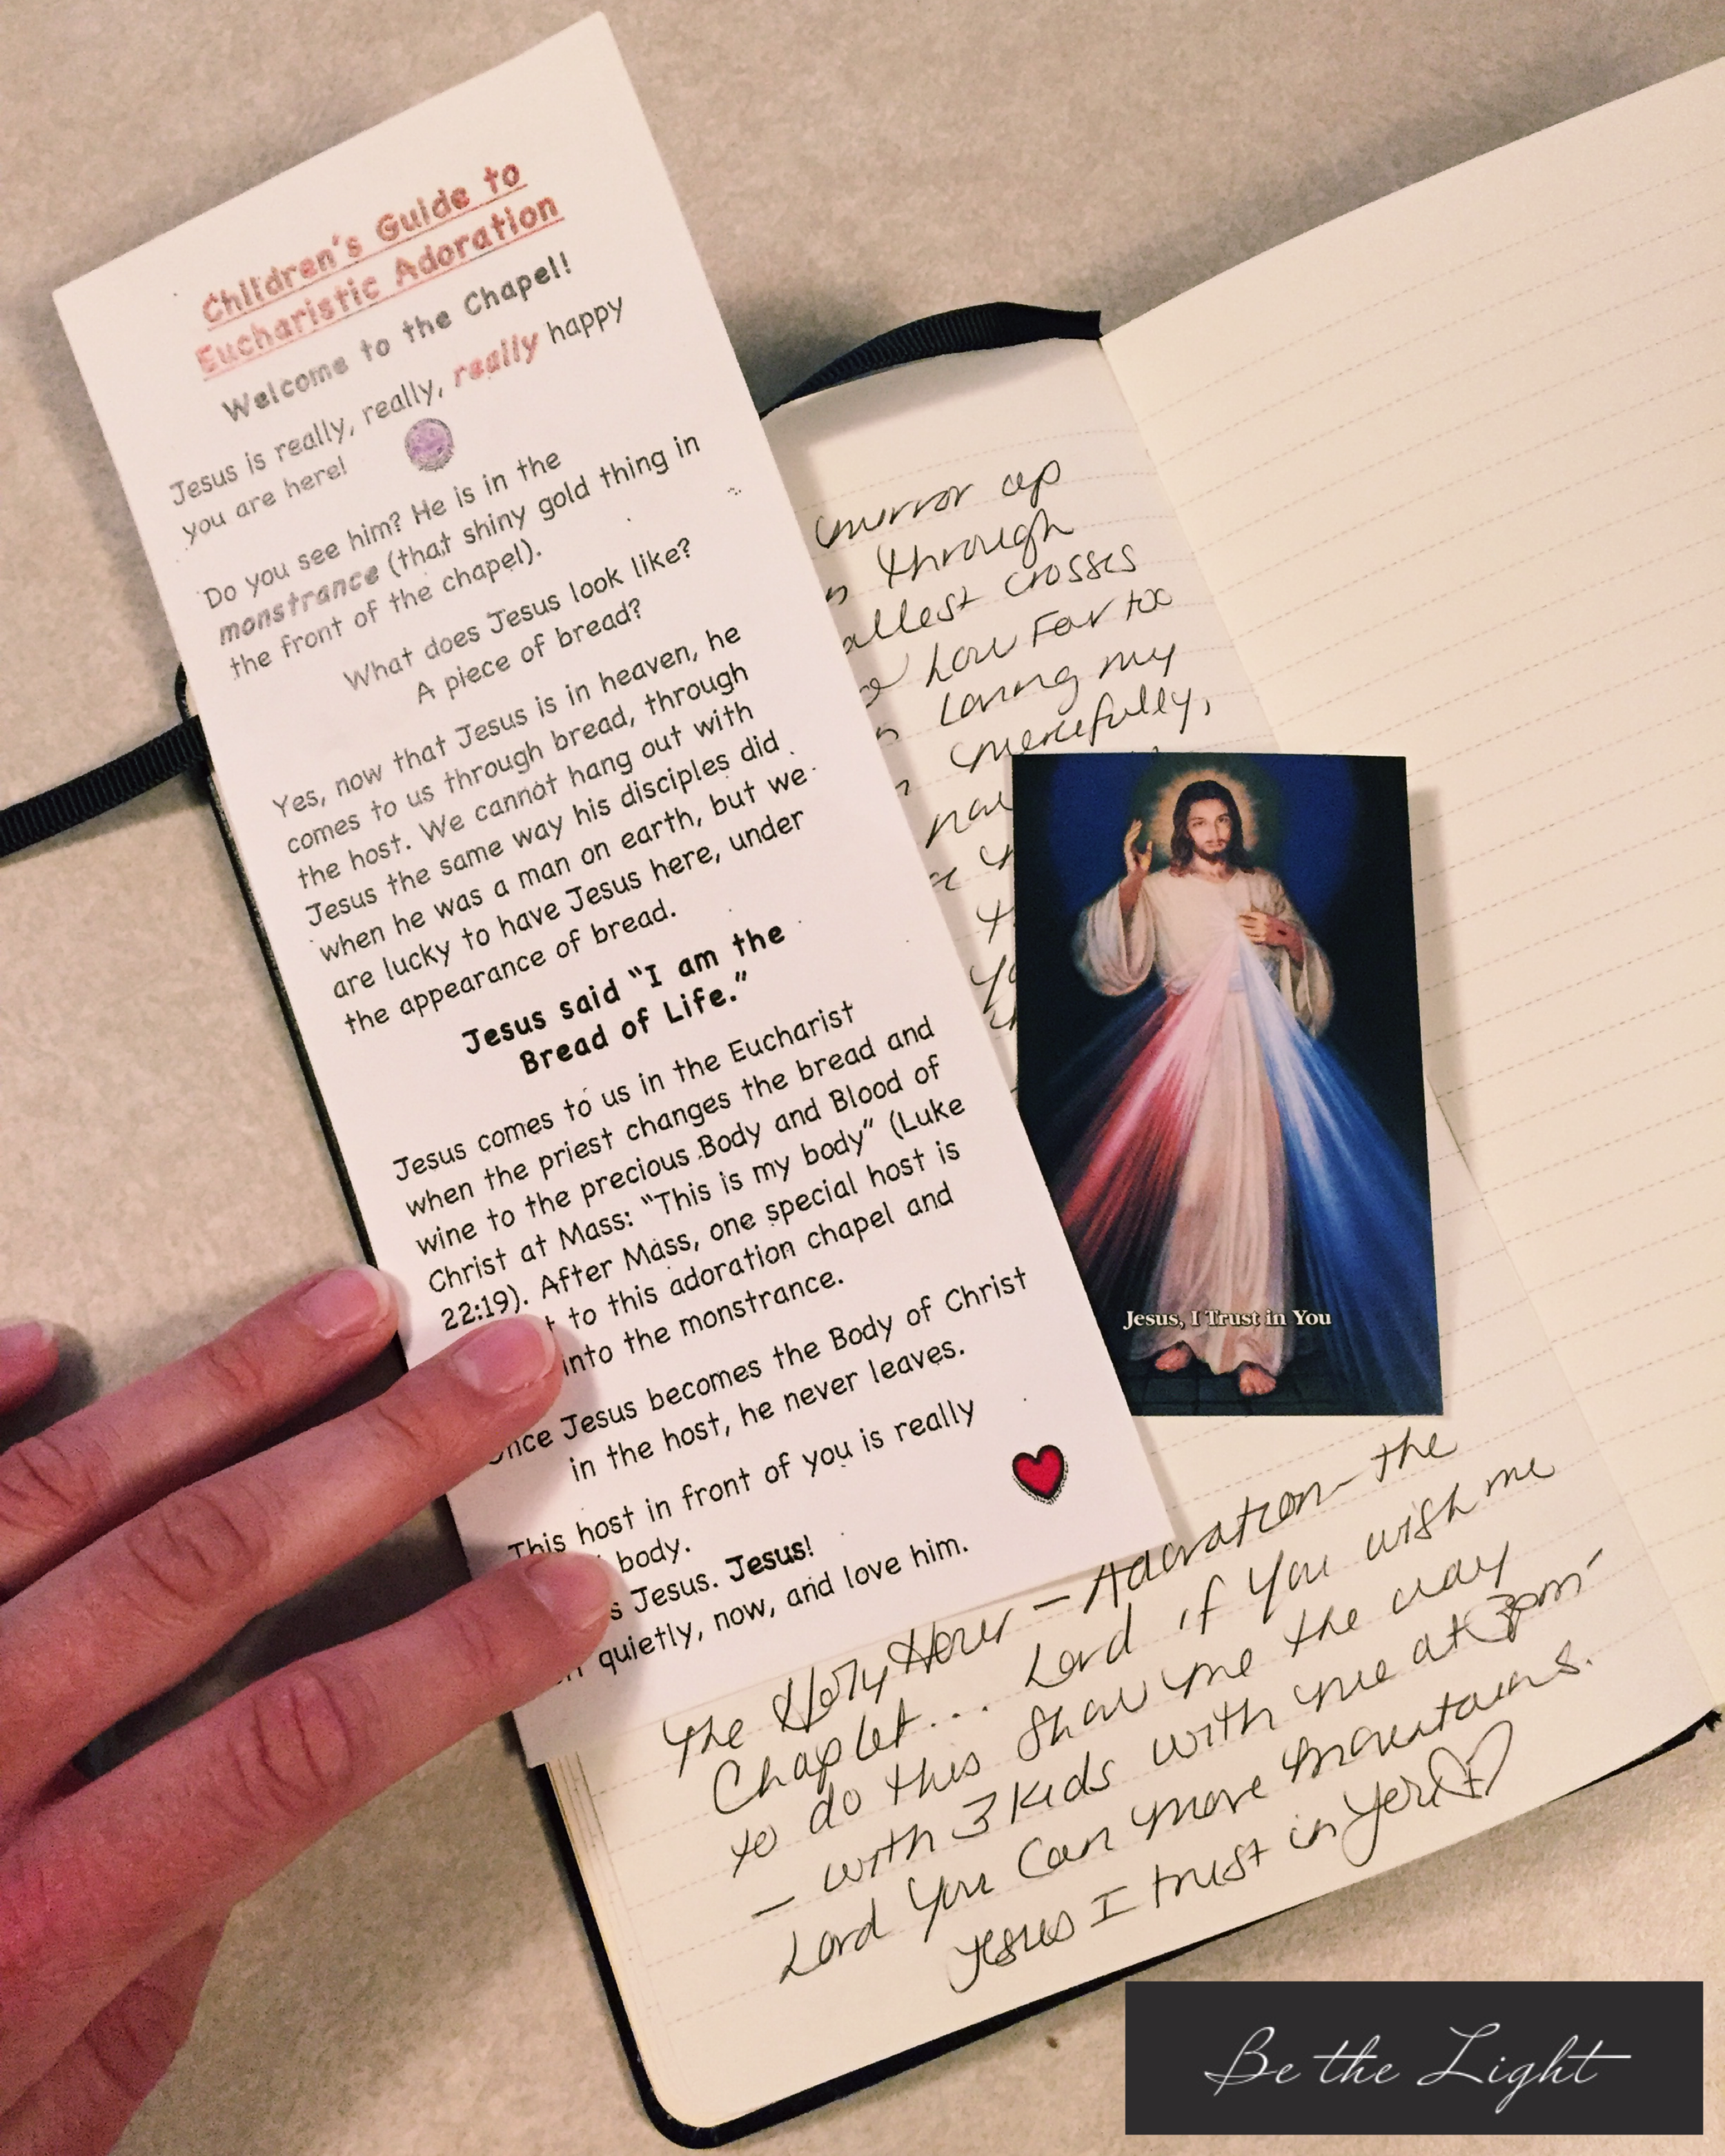 Children's Guide to
Eucharistic Adoration
Welcome to the Chapel!
Jesus is really, really, really happy
you are here!
Do you see him? He is in the
monstrance (that shiny gold thing in
the front of the chapel).
What does Jesus look like?
A piece of bread?
Yes, now that Jesus is in heaven, he
comes to us through bread, through
the host. We cannot hang out with
Jesus the same way his disciples did
when he was a man on earth, but we
are lucky to have Jesus here, under
the appearance of bread.
Jesus said "I am the
Bread of Life."
Jesus comes to us in the Eucharist
when the priest changes the bread and
wine to the precious Body and Blood of
Christ at Mass: "This is my body" (Luke
22:19). After Mass, one special host is
to this adoration chapel and
into the monstrance.
Once Jesus becomes the Body of Christ
in the host, he never leaves.
This host in front of you is really
body.
Jesus. Jesus!
quietly, now, and love him.
mirror up
through
crosses
how far too
loving my
mercifully,
Jesus, I Trust in You
The Holy Hour - Adoration - the
Chaplet... Lord if You wish me
to do this show me the way
- with 3 kids with me at 3pm -
Lord You can move mountains.
Jesus I trust in You
Be the Light